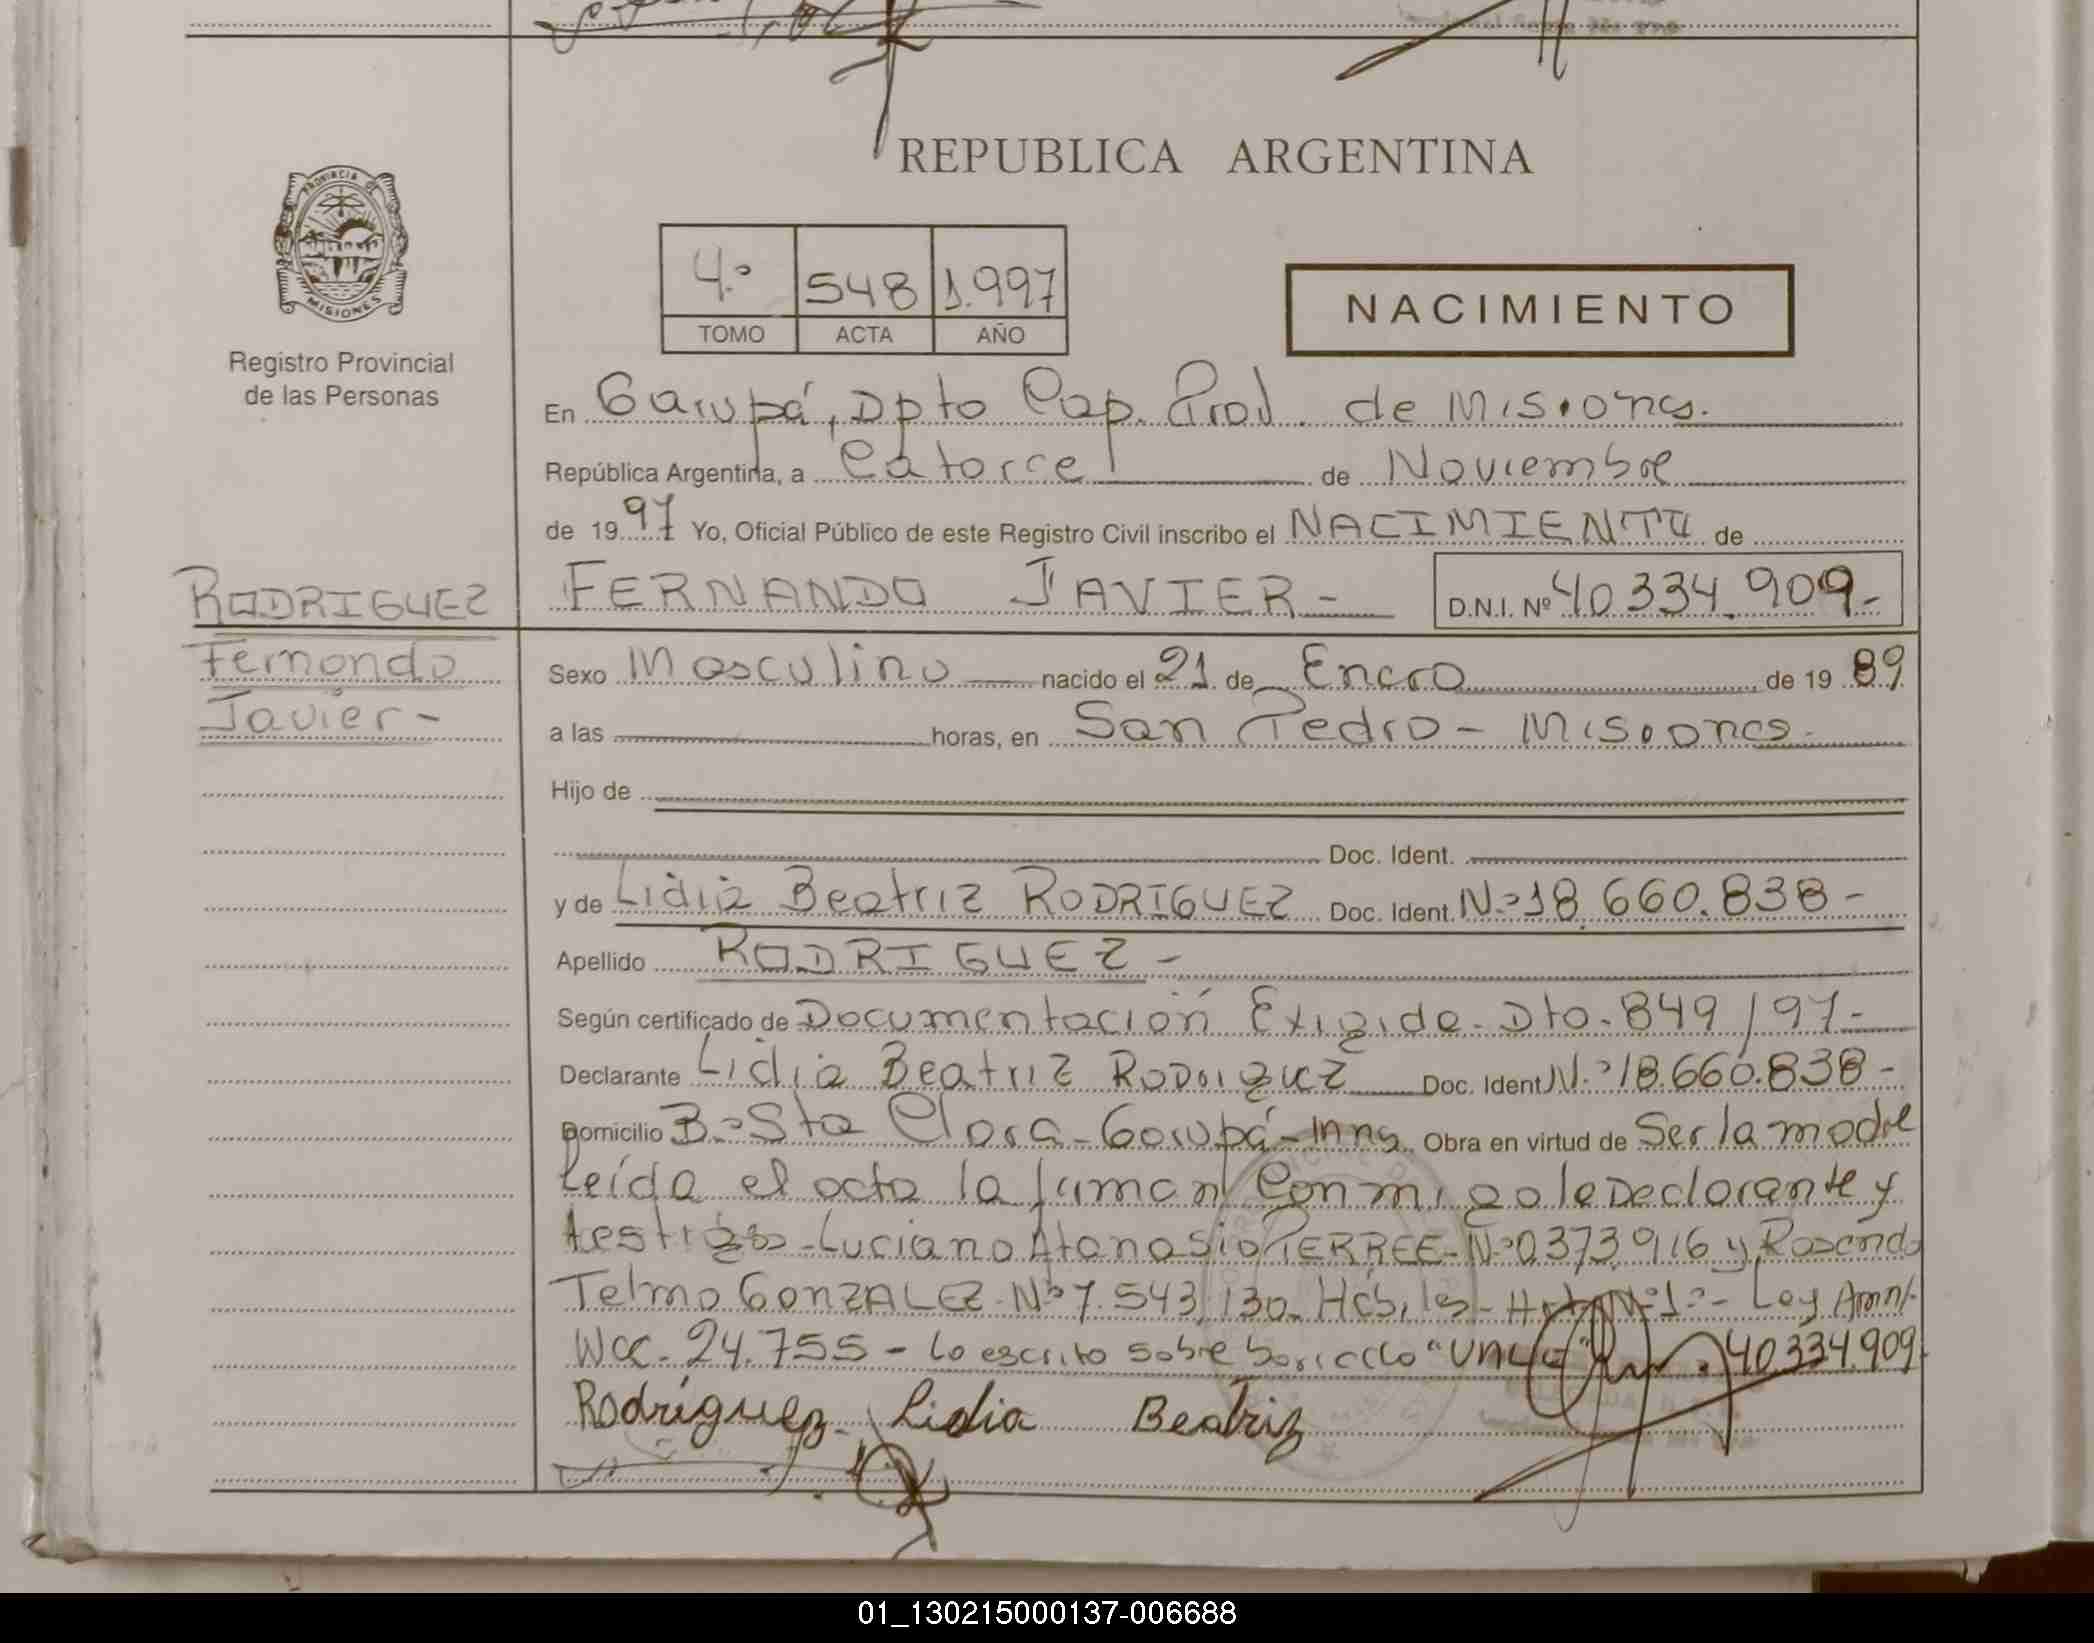 REPUBLICA ARGENTINA
PROVINCIA DE MISIONES
Registro Provincial
de las Personas
4.º 548 1.997
TOMO ACTA AÑO
NACIMIENTO
En Garupá, Dpto Cap. Prov. de Misiones.
República Argentina, a Catorce de Noviembre
de 1997 Yo, Oficial Público de este Registro Civil inscribo el NACIMIENTO de
RODRIGUEZ
Fernando
Javier-
FERNANDO JAVIER- D.N.I. Nº 40 334.909-
Sexo Masculino nacido el 21 de Enero de 19 89
a las horas, en San Pedro - Misiones.
Hijo de
Doc. Ident.
y de Lidia Beatriz RODRIGUEZ Doc. Ident. N.º 18.660.838-
Apellido RODRIGUEZ-
Según certificado de Documentación Exigida. Dto. 849/97-
Declarante Lidia Beatriz RODRIGUEZ Doc. Ident. N.º 18.660.838-
Domicilio B.º Sta Clara - Garupá - Mnes. Obra en virtud de Ser la madre
Leída el acta la firman Conmigo la Declarante y
testigos - Luciano Atanasio PERREE - Nº 0373.916 y Rosendo
Telmo GONZALEZ - Nº 7.543.130 - Hábiles - Nº 1º - Ley
24.755 - Lo escrito sobre borrado 40.334.909
Rodríguez Lidia Beatriz
01_130215000137-006688